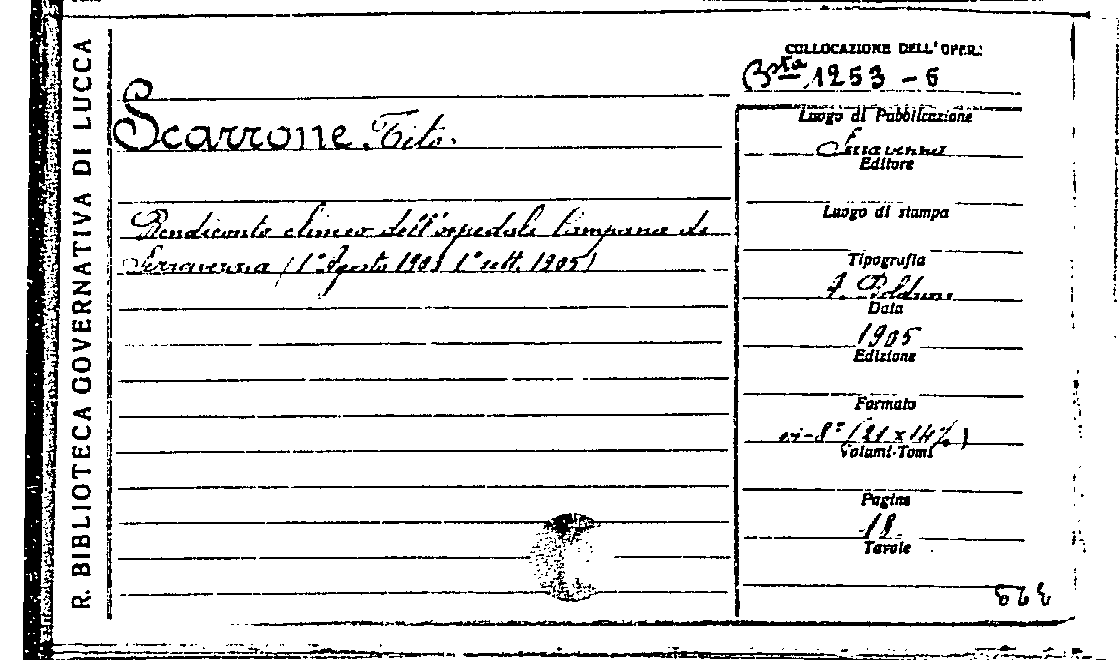 R. BIBLIOTECA GOVERNATIVA DI LUCCA
COLLOCAZIONE DELL'OPER:
Bsta 1253 - 6
Scarrone Tito.
Luogo di Pubblicazione
Serravezza
Editore
Rendiconto clinico dell'ospedale Campana di
Serravezza (1° Agosto 1903 1° sett. 1905)
Luogo di stampa
Tipografia
Data
1905
Edizione
Formato
in-8° (21 x 14½)
Volumi-Tomi
Pagine
18
Tavole